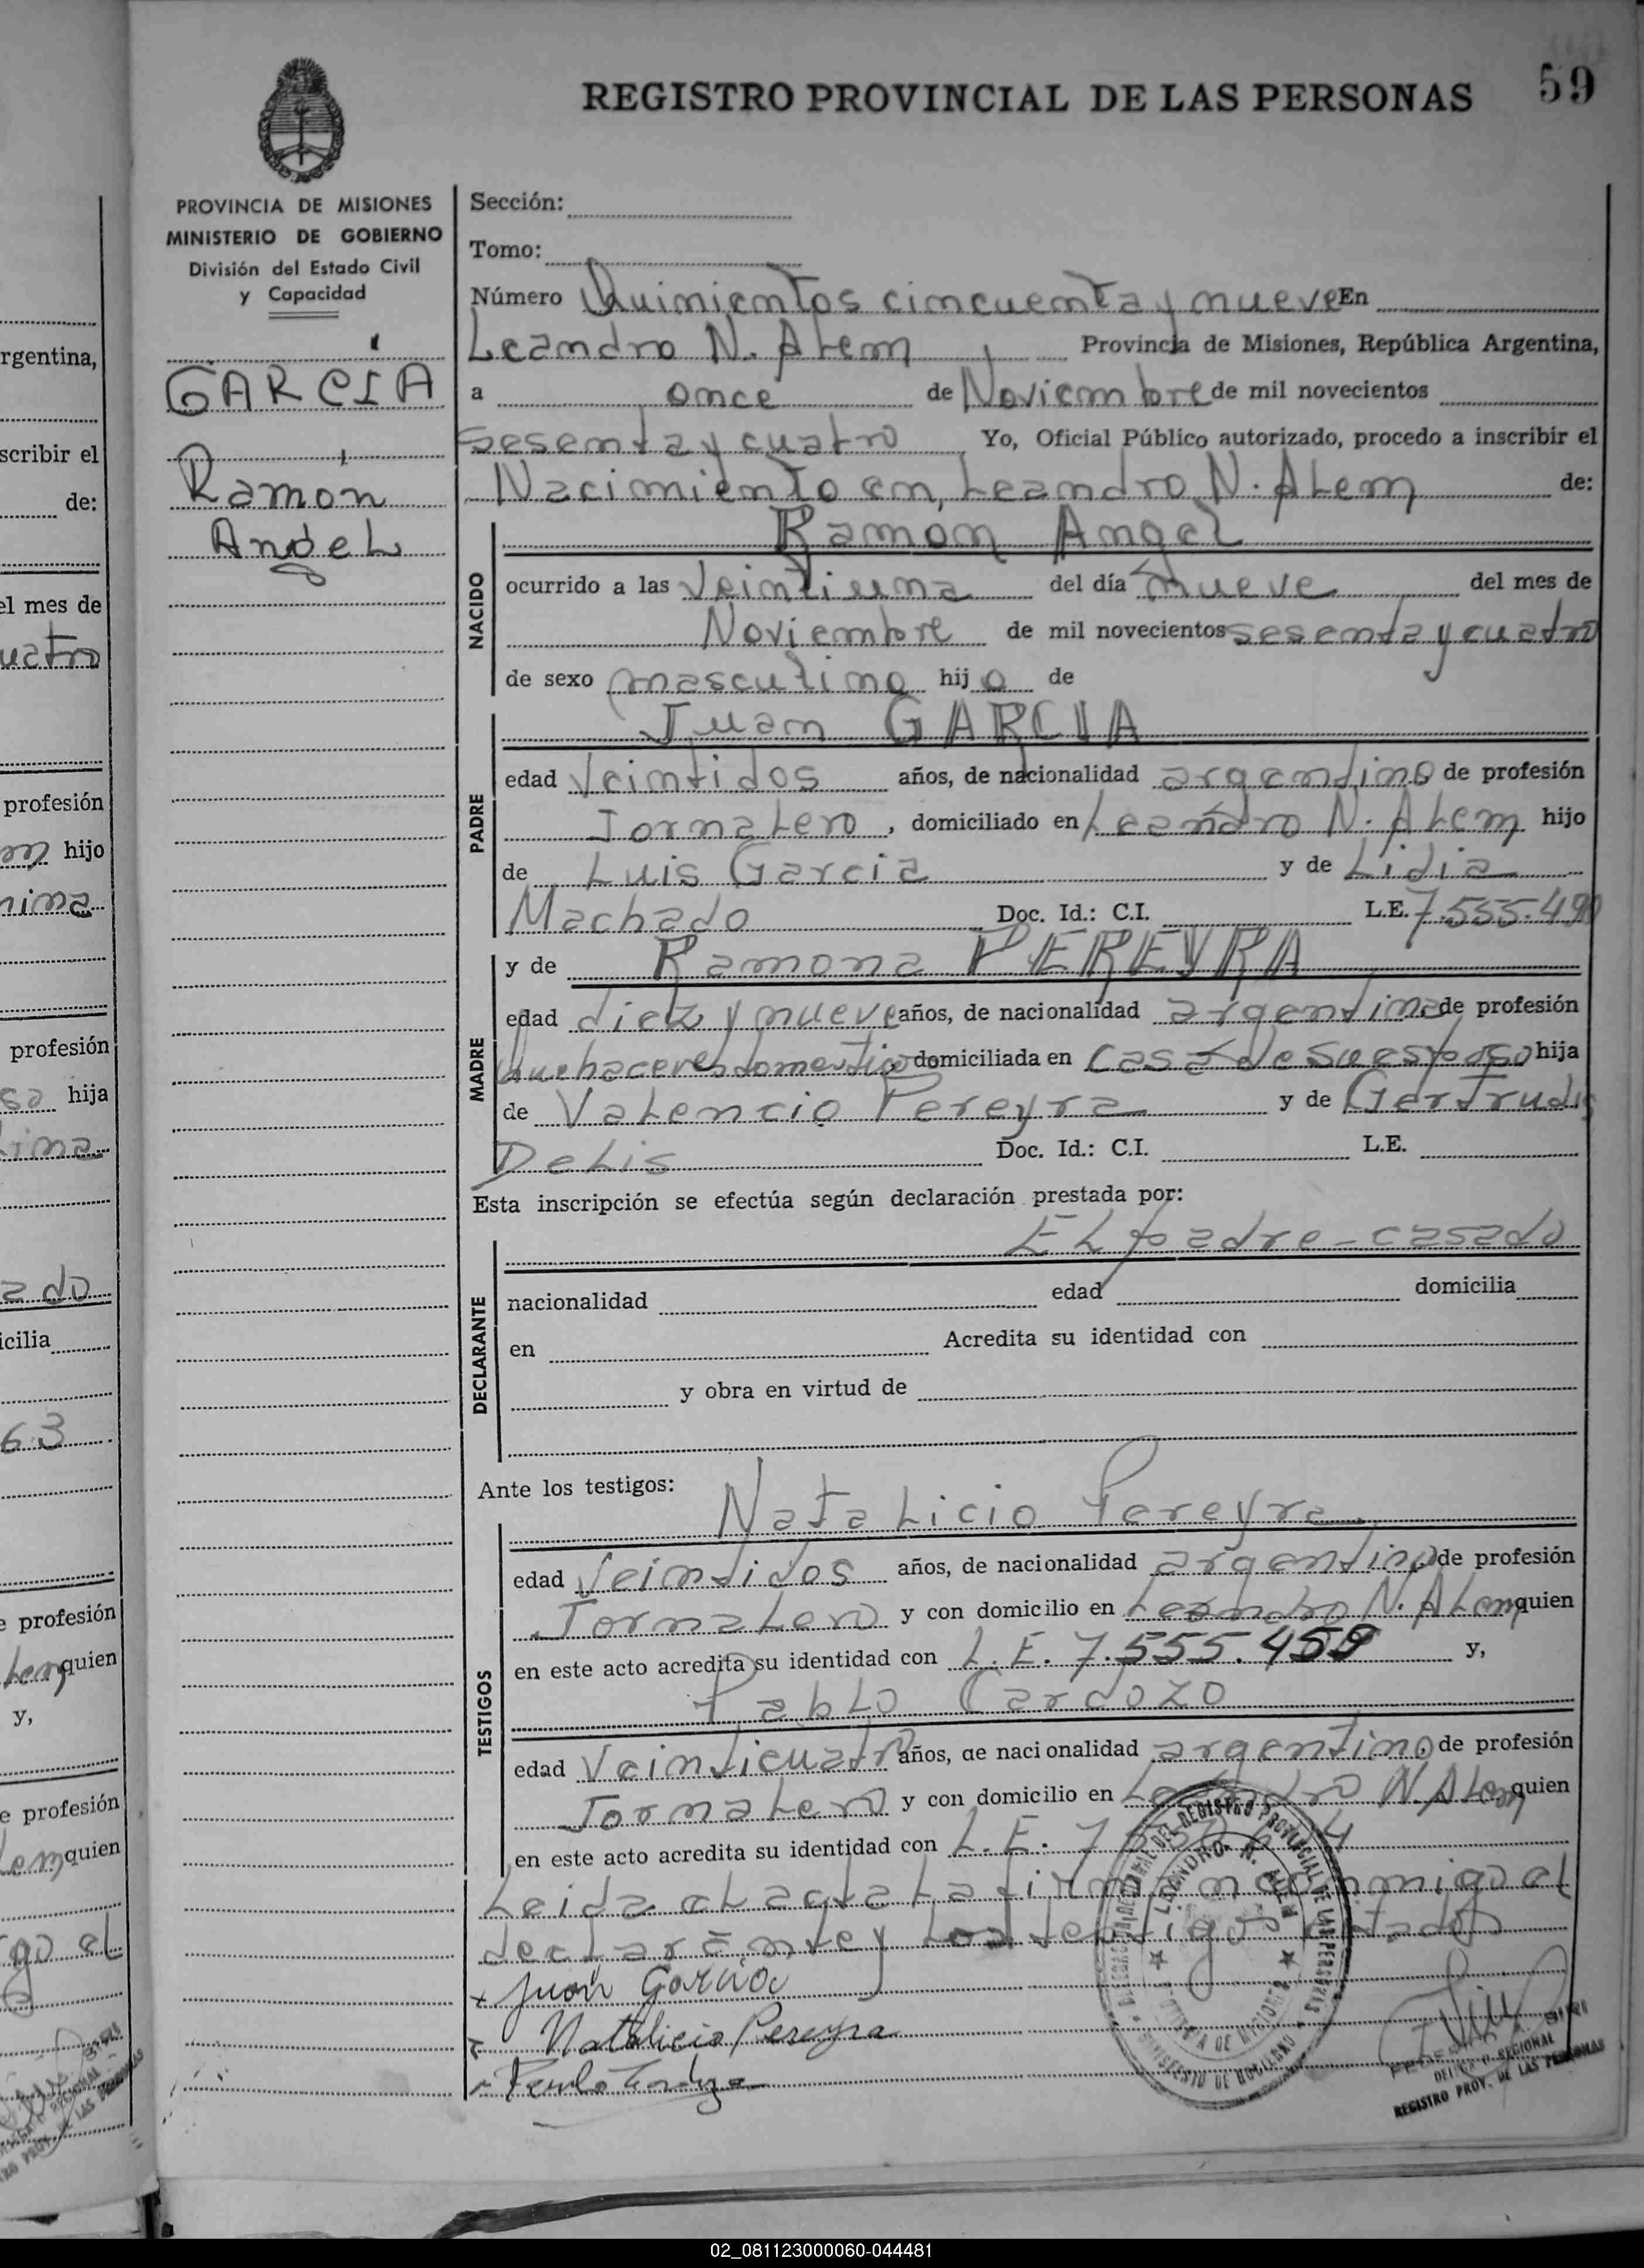 REGISTRO PROVINCIAL DE LAS PERSONAS 59
PROVINCIA DE MISIONES
MINISTERIO DE GOBIERNO
División del Estado Civil
y Capacidad
GARCIA
Ramon
Angel
Sección:
Tomo:
Número Quinientos cincuenta y nueve En
Leandro N. Alem, Provincia de Misiones, República Argentina,
a once de Noviembre de mil novecientos
sesenta y cuatro Yo, Oficial Público autorizado, procedo a inscribir el
Nacimiento en, Leandro N. Alem de:
Ramon Angel
NACIDO
ocurrido a las veintiuna del día nueve del mes de
Noviembre de mil novecientos sesenta y cuatro
de sexo masculino hijo de
Juan GARCIA
PADRE
edad veintidos años, de nacionalidad argentino de profesión
Jornalero, domiciliado en Leandro N. Alem hijo
de Luis Garcia y de Lidia
Machado Doc. Id.: C.I. L.E. 7.555.490
y de Ramona PEREYRA
MADRE
edad diez y nueve años, de nacionalidad argentina de profesión
Quehaceres domestico domiciliada en casa de su esposo hija
de Valencio Pereyra y de Gertrudis
Delis Doc. Id.: C.I. L.E.
Esta inscripción se efectúa según declaración prestada por:
El padre - casado
DECLARANTE
nacionalidad edad domicilia
en Acredita su identidad con
y obra en virtud de
Ante los testigos:
Natalicio Pereyra
TESTIGOS
edad veintidos años, de nacionalidad argentino de profesión
Jornalero y con domicilio en Leandro N. Alem quien
en este acto acredita su identidad con L.E. 7.555.459 y,
Pablo Cardozo
edad Veinticuatro años, de nacionalidad argentino, de profesión
Jornalero y con domicilio en Leandro N. Alem quien
en este acto acredita su identidad con L.E. 7
Leida el acta la firman conmigo el
declarante y los testigos citados
x Juan Garcia
Natalicio Pereyra
DEL REGISTRO PROVINCIAL DE LAS PERSONAS
LEANDRO N. ALEM
MINISTERIO DE GOBIERNO
REGIONAL
REGISTRO PROV. DE LAS PERSONAS
rgentina,
scribir el
de:
el mes de
uatro
profesión
hijo
nima
profesión
hija
ado
icilia
63
e profesión
quien
y,
e profesión
quien
go el
02_081123000060-044481